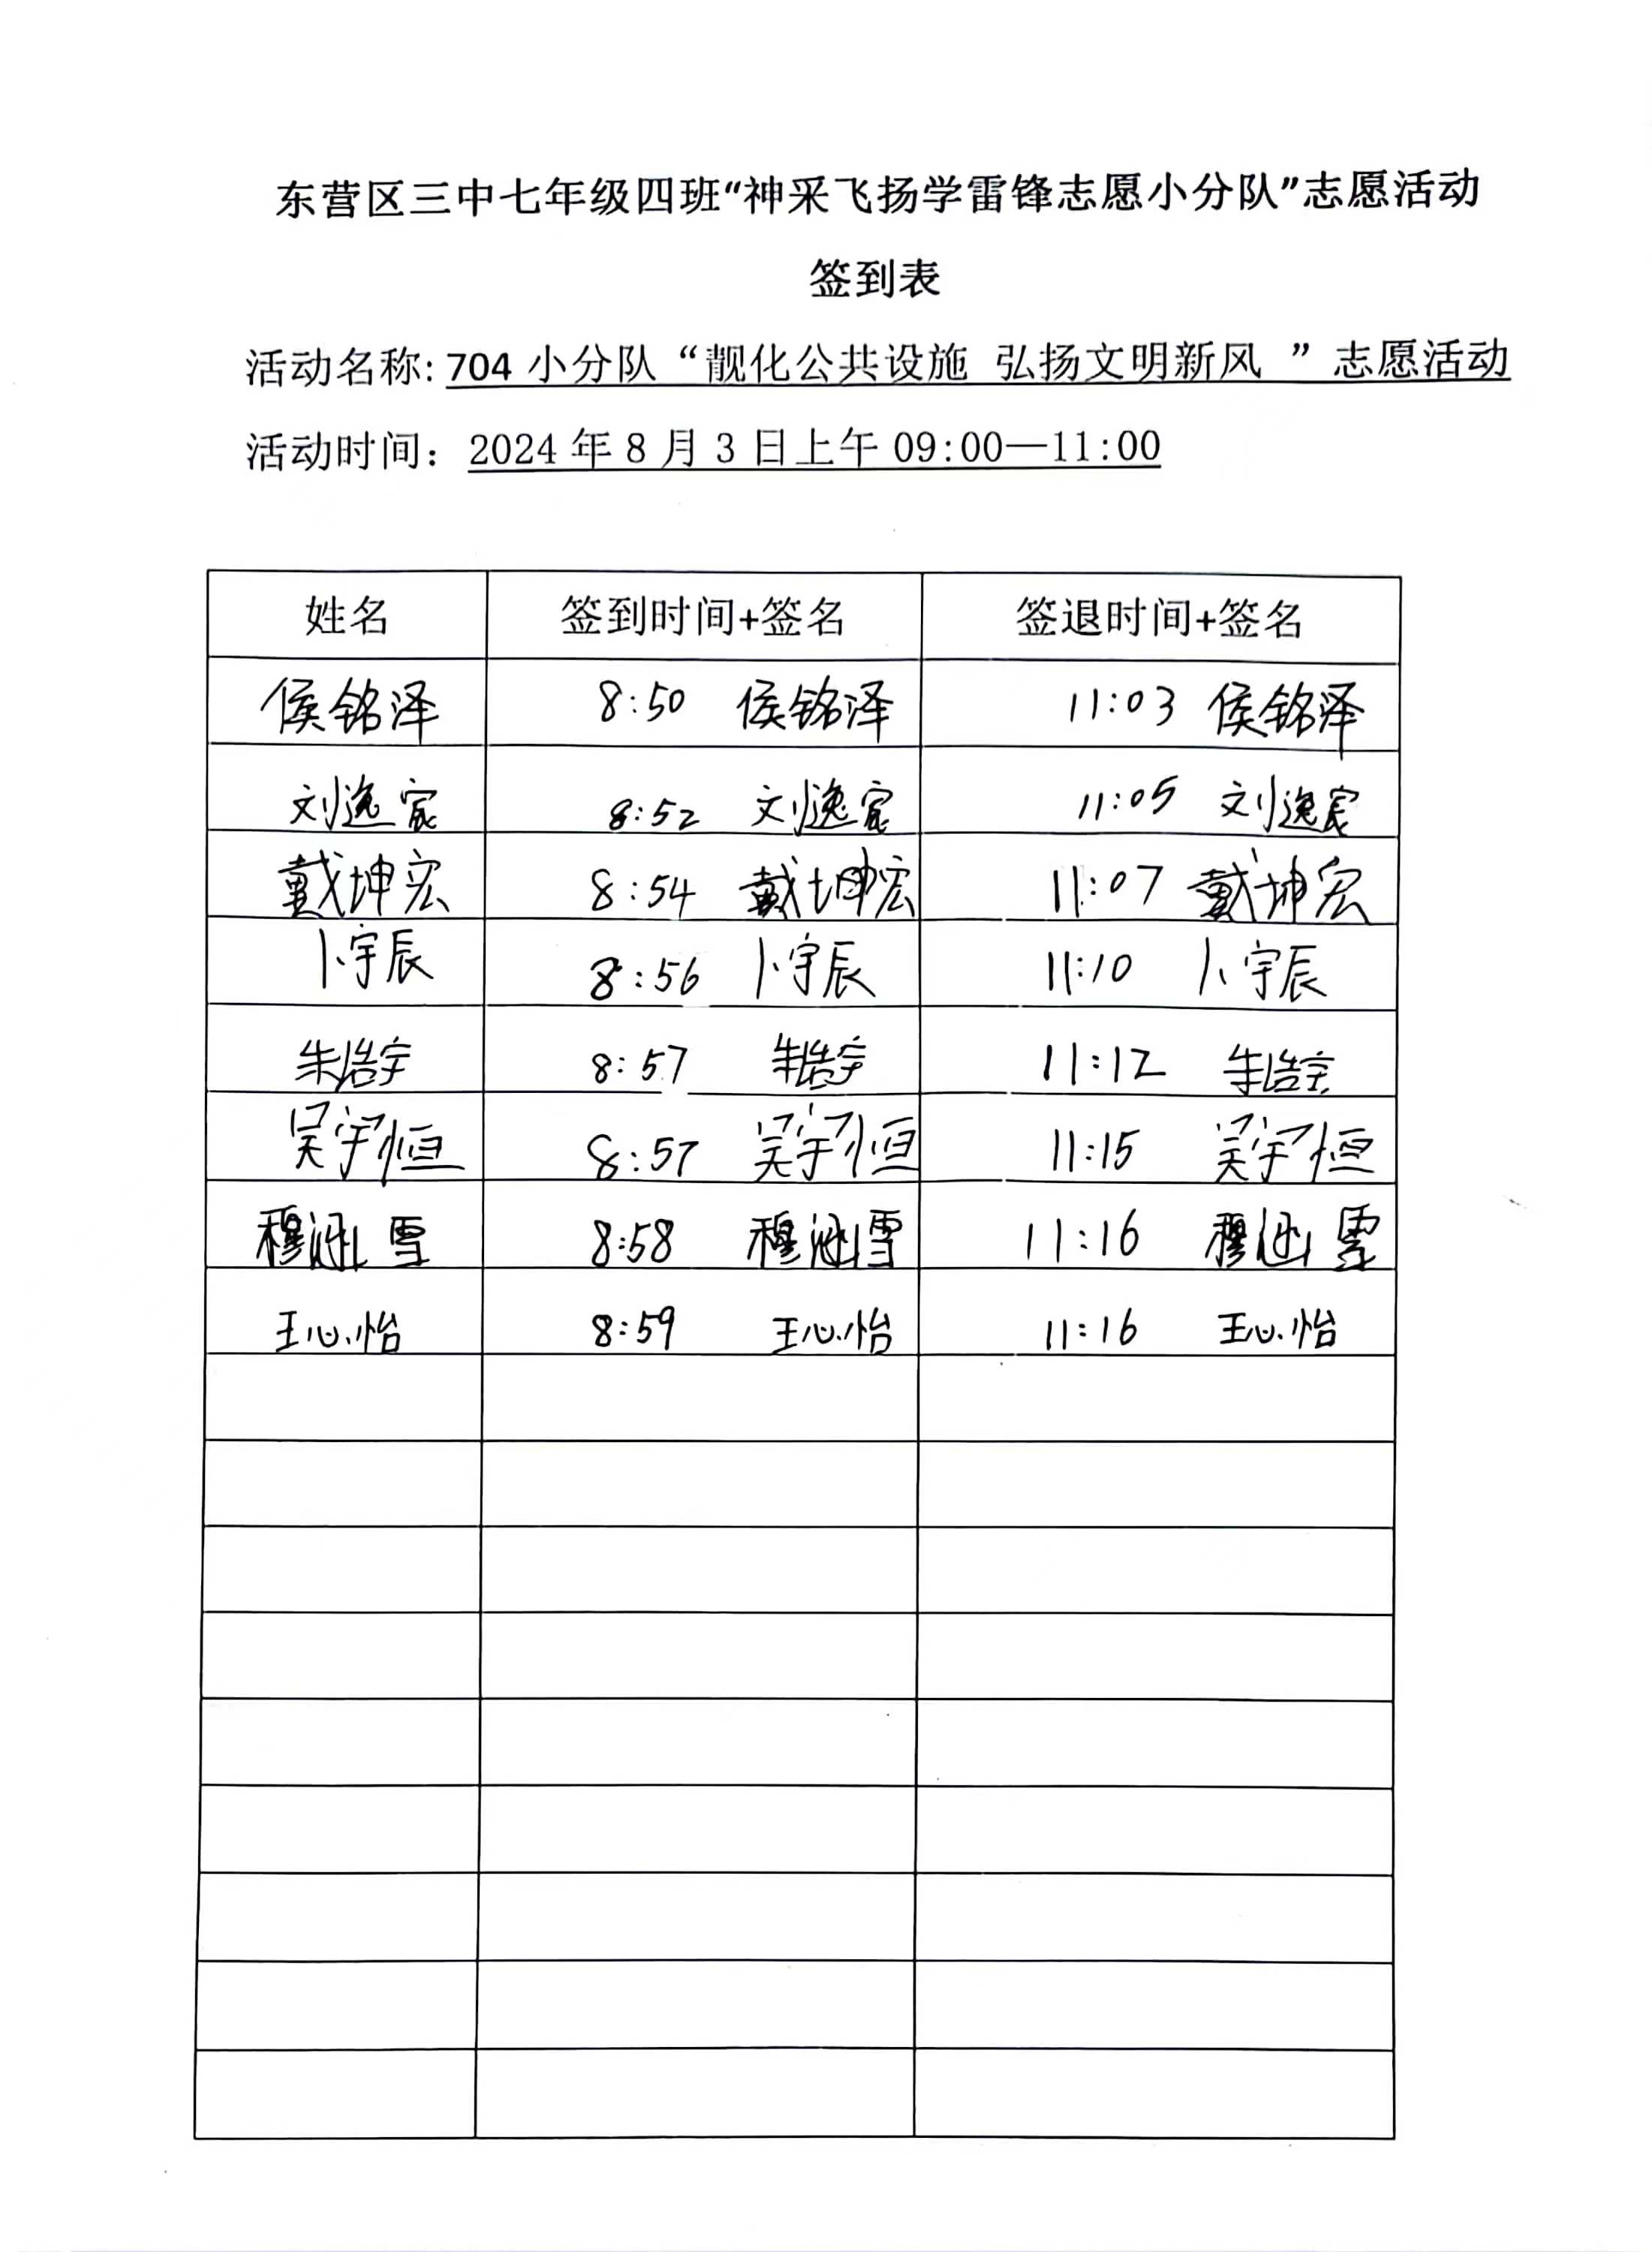 东营区三中七年级四班“神采飞扬学雷锋志愿小分队”志愿活动
签到表
活动名称: 704 小分队 “靓化公共设施 弘扬文明新风 ” 志愿活动
活动时间: 2024 年 8 月 3 日上午 09:00—11:00
姓名 签到时间+签名 签退时间+签名
侯铭泽 8:50 侯铭泽 11:03 侯铭泽
刘逸宸 8:52 刘逸宸 11:05 刘逸宸
戴坤宏 8:54 戴坤宏 11:07 戴坤宏
卜宇辰 8:56 卜宇辰 11:10 卜宇辰
朱浩宇 8:57 朱浩宇 11:12 朱浩宇
吴宇恒 8:57 吴宇恒 11:15 吴宇恒
穆涵雪 8:58 穆涵雪 11:16 穆涵雪
王心怡 8:59 王心怡 11:16 王心怡